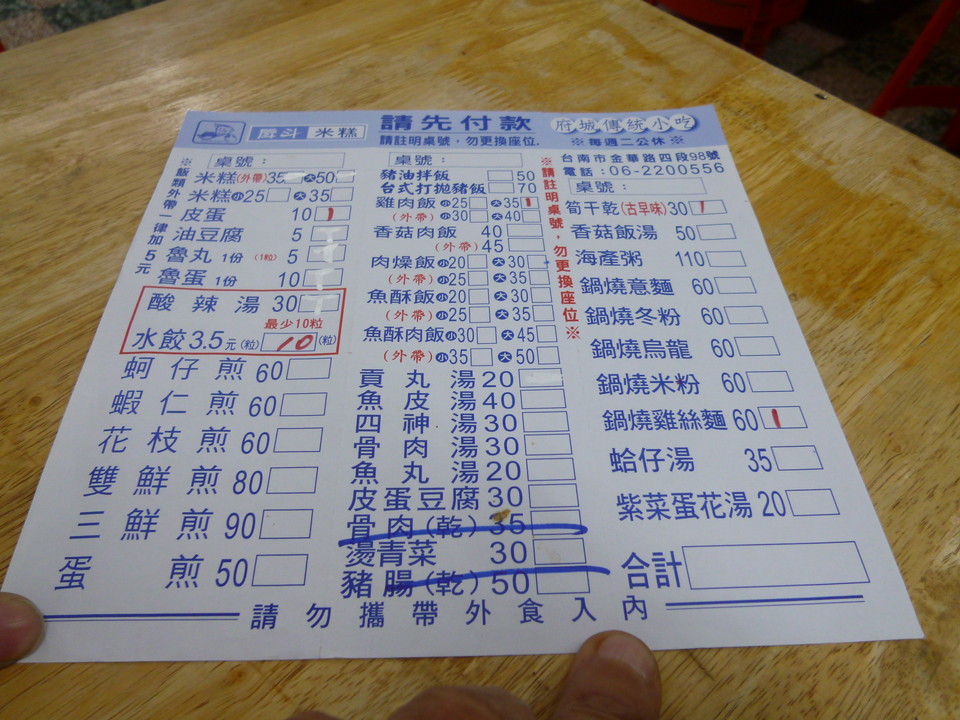 戽斗 米糕
請先付款
請註明桌號，勿更換座位。
府城傳統小吃
※每週二公休※
台南市金華路四段98號
電話：06-2200556
※飯類外帶一律加5元
桌號：
米糕(外帶)35 大50
米糕小25 大35
皮蛋 10
油豆腐 5
魯丸 1份 (1粒) 5
魯蛋 1份 10
酸辣湯 30
最少10粒
水餃3.5元(粒) 10 (粒)
蚵仔煎 60
蝦仁煎 60
花枝煎 60
雙鮮煎 80
三鮮煎 90
蛋煎 50
桌號：
豬油拌飯 50
台式打拋豬飯 70
雞肉飯 小25 大35
(外帶) 小30 大40
香菇肉飯 40
(外帶) 45
肉燥飯 小20 大30
(外帶) 小25 大35
魚酥飯 小20 大30
(外帶) 小25 大35
魚酥肉飯 小30 大45
(外帶) 小35 大50
貢丸湯 20
魚皮湯 40
四神湯 30
骨肉湯 30
魚丸湯 20
皮蛋豆腐 30
骨肉(乾) 35
燙青菜 30
豬腸(乾) 50
※請註明桌號，勿更換座位※
桌號：
筍干乾(古早味)30
香菇飯湯 50
海產粥 110
鍋燒意麵 60
鍋燒冬粉 60
鍋燒烏龍 60
鍋燒米粉 60
鍋燒雞絲麵 60
蛤仔湯 35
紫菜蛋花湯 20
合計
請勿攜帶外食入內